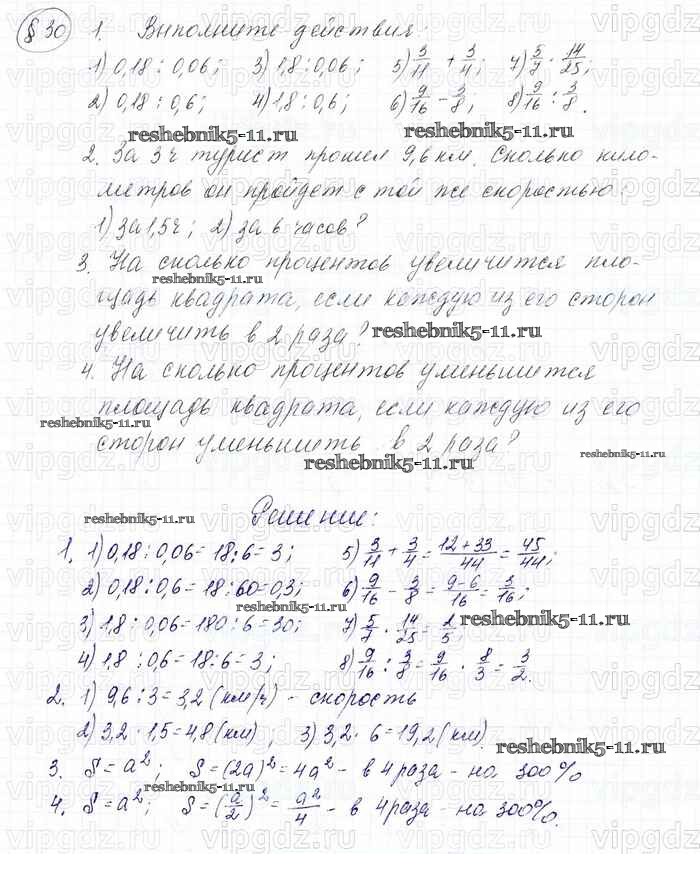 § 30 1. Выполните действия:
1) 0,18 : 0,06; 3) 1,8 : 0,06; 5) 3/11 + 3/4; 7) 5/7 · 14/25;
2) 0,18 : 0,6; 4) 1,8 : 0,6; 6) 9/16 - 3/8; 8) 9/16 : 3/8.
reshebnik5-11.ru
2. За 3ч турист прошел 9,6 км. Сколько кило-
метров он пройдет с той же скоростью:
1) за 1,5ч; 2) за 6 часов?
3. На сколько процентов увеличится пло-
reshebnik5-11.ru
щадь квадрата, если каждую из его сторон
увеличить в 2 раза?
reshebnik5-11.ru
4. На сколько процентов уменьшится
площадь квадрата, если каждую из его
reshebnik5-11.ru
сторон уменьшить в 2 раза?
reshebnik5-11.ru
reshebnik5-11.ru
Решение:
reshebnik5-11.ru
1. 1) 0,18 : 0,06 = 18 : 6 = 3; 5) 3/11 + 3/4 = (12+33)/44 = 45/44;
2) 0,18 : 0,6 = 18 : 60 = 0,3; 6) 9/16 - 3/8 = (9-6)/16 = 3/16;
reshebnik5-11.ru
3) 1,8 : 0,06 = 180 : 6 = 30; 7) 5/7 · 14/25 = 2/5;
reshebnik5-11.ru
4) 1,8 : 0,6 = 18 : 6 = 3; 8) 9/16 : 3/8 = 9/16 · 8/3 = 3/2.
2. 1) 9,6 : 3 = 3,2 (км/ч) - скорость
2) 3,2 · 1,5 = 4,8 (км); 3) 3,2 · 6 = 19,2 (км)
reshebnik5-11.ru
3. S = a²; S = (2a)² = 4a² - в 4 раза - на 300%
reshebnik5-11.ru
4. S = a²; S = (a/2)² = a²/4 - в 4 раза - на 300%.
vipgdz